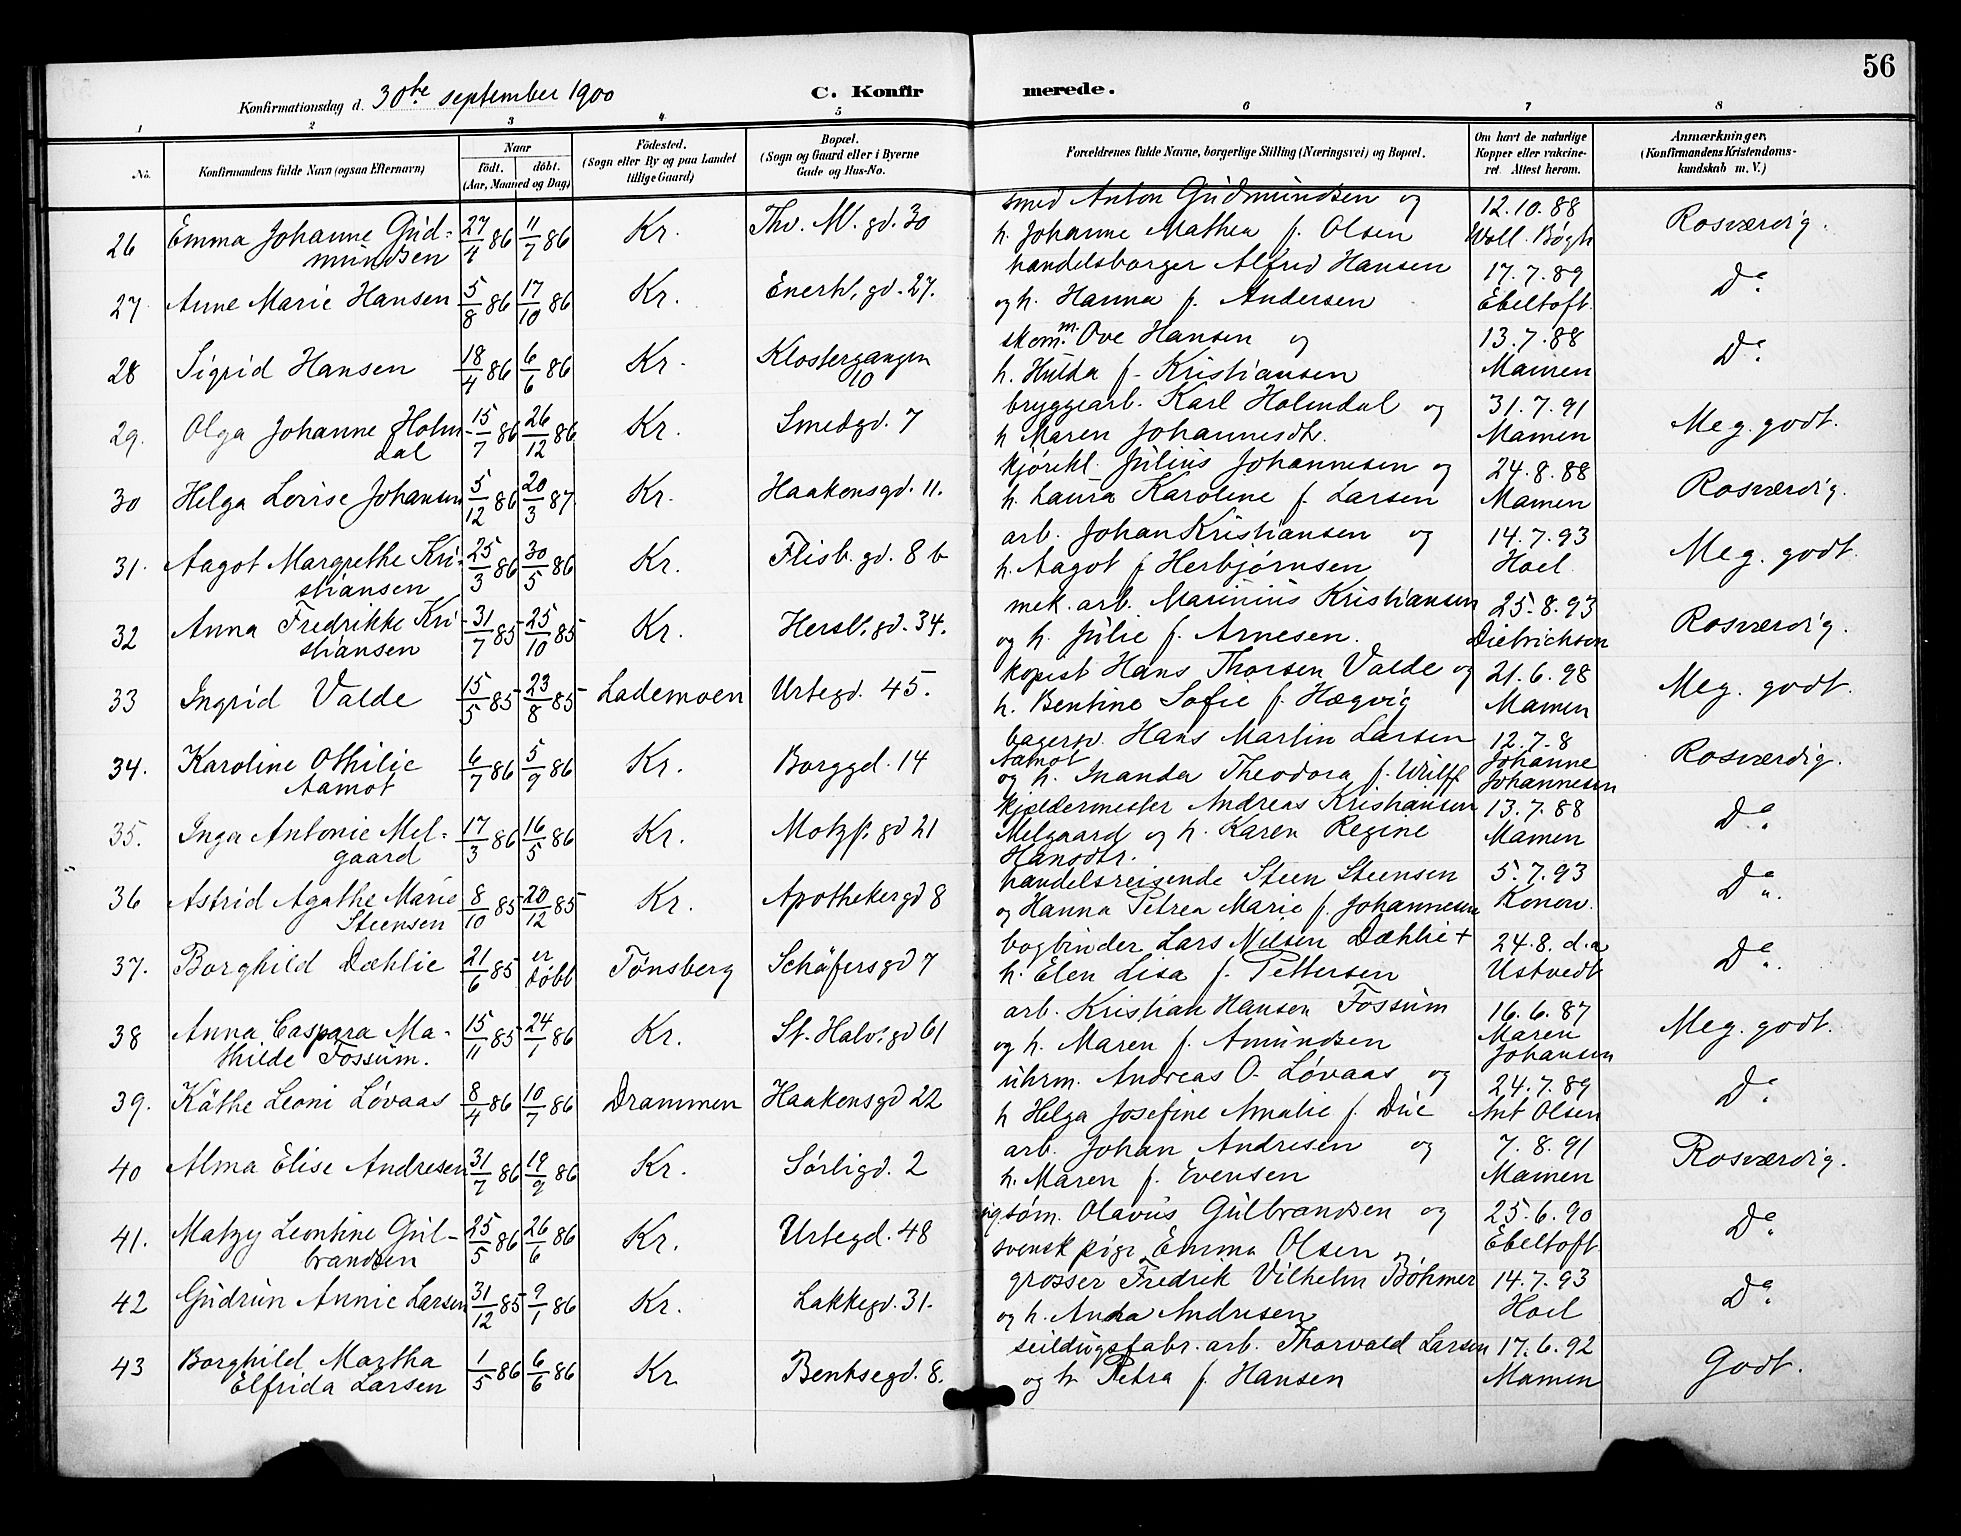 56
Konfirmationsdag d. 30te september 1900 C. Konfirmerede.
1 2 3 4 5 6 7 8
No. Konfirmandens fulde Navn (ogsaa Efternavn) Naar født. døbt. (Aar, Maaned og Dag) Födested. (Sogn eller By og paa Landet tillige Gaard) Bopæl. (Sogn og Gaard eller i Byerne Gade og Hus-No. Forældrenes fulde Navne, borgerlige Stilling (Næringsvei) og Bopæl. Om havt de naturlige Kopper eller vakcineret. Attest herom. Anmærkninger. (Konfirmandens Kristendomskundskab m. V.)
26 Emma Johanne Gud- 27/1 86 11/7 86 Kr. Thv. M. gd. 30 smed Anton Gudmundsen og 12.10.88 Rosværdig.
mundsen h. Johanne Mathea f. Olsen Woll. Bøgh
27. Anne Marie Hansen 5/8 86 17/10 86 Kr. Enerh. gd. 27. handelsborger Alfred Hansen 17.7.89 Do
og h. Hanna f. Andersen Ebeltoft.
28 Sigrid Hansen 18/4 86 6/6 86 Kr. Klostergangen 10 skom. Ove Hansen og 13.7.88 Do
h. Hulda f. Kristiansen Mamen
29. Olga Johanne Holm- 15/7 86 26/12 86 Kr. Smedgd. 7 bryggearb. Karl Holmdal og 31.7.91 Meg. godt.
dal h Maren Johannesdtr. Mamen
30 Helga Lovise Johansen 5/12 86 20/3 87. Kr. Haakensgd. 11. kjørekl. Julius Johannesen og 24.8.88 Rosværdig.
h. Laura Karoline f. Larsen Mamen
31. Aagot Margrethe Kri- 25/3 86 30/5 86 Kr. Flisb. gd. 8 b arb. Johan Kristiansen og 14.7.93 Meg. godt.
stiansen h. Aagot f Herbjørnsen Hoel.
32 Anna Fredrikke Kri 31/7 85 25/10 85 Kr. Hersl. gd. 34. mek. arb. Marinius Kristiansen 25.8.93 Rosværdig.
stiansen og h. Julie f. Arnesen. Dietrichsen
33 Ingrid Valde 15/5 85 23/8 85 Lademoen Urtegd. 45. kopist Hans Thorsen Valde og 21.6.98 Meg. godt.
h. Bentine Sofie f. Hægvig Mamen
34. Karoline Othilie 6/7 86 5/9 86 Kr. Borggd. 14 bagersv. Hans Martin Larsen 12.7.8 Rosværdig.
Aamot Aamot og h. Inanda Theodora f. Wulff Johanne Johannesen
35. Inga Antonie Mel- 17/3 86 16/5 86 Kr. Motzf. gd 21 kjeldermester Andreas Kristiansen 13.7.88 Do
gaard Melgaard og h. Karen Regine Mamen
Hansdtr.
36 Astrid Agathe Marie 8/10 85 20/12 85 Kr. Apothekergd 8 handelsreisende Steen Steensen 5.7.93 Do
Steensen og Hanna Petrea Marie f. Johannesen Konow.
37. Borghild Dæhlie 21/6 85 er døbt Tønsberg Schäfersgd 7 bogbinder Lars Nilsen Dæhlie + 24.8. d.a Do
h. Elen Lisa f. Pettersen Ustvedt
38 Anna Caspara Ma- 15/11 85 24/1 86 Kr. St. Halv. gd 61 arb. Kristian Hansen Fossum 16.6.87 Meg. godt.
thilde Fossum. og h. Maren f. Amundsen Maren Johansen
39. Käthe Leoni Løvaas 8/4 86 10/7 86 Drammen Haakensgd 22 uhrm. Andreas O. Løvaas og 24.7.89 Do
h Helga Josefine Amalie f. Due Ant Olsen
40 Alma Elise Andresen 31/7 86 19/9 86 Kr. Sørligd. 2 arb. Johan Andresen og 7.8.91 Rosværdig.
h. Maren f. Evensen Mamen
41. Matzy Leontine Gul- 25/5 86 26/6 86 Kr. Urtegd. 48 ugsøm. Olavus Gulbrandsen og 25.6.90 Do
brandsen svensk pige Emma Olsen Ebeltoft.
42 Gudrun Annie Larsen 31/12 85 9/1 86 Kr. Lakkegd. 31. grosser Fredrik Vilhelm Bøhmer 14.7.93 Do
og h. Anna Andresen Hoel
43 Borghild Martha 1/5 86 6/6 86 Kr Bentsegd. 8. seildugsfabr. arb. Thorvald Larsen 17.6.92 Godt.
Elfrida Larsen og h. Petra f. Hansen Mamen